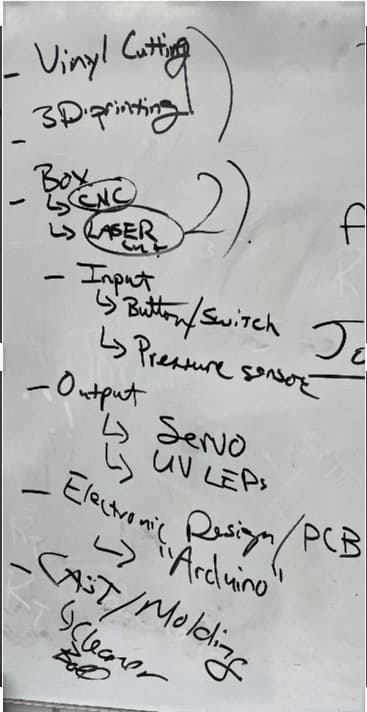 - Vinyl Cutting
- 3D-printing
- Box
↳ CNC
↳ LASER cut
2).
- Input
↳ Button/Switch
↳ Pressure sensor
- Output
↳ Servo
↳ UV LEDs
- Electronic Design/PCB
↳ "Arduino"
- CAST/Molding
↳ Cleaner